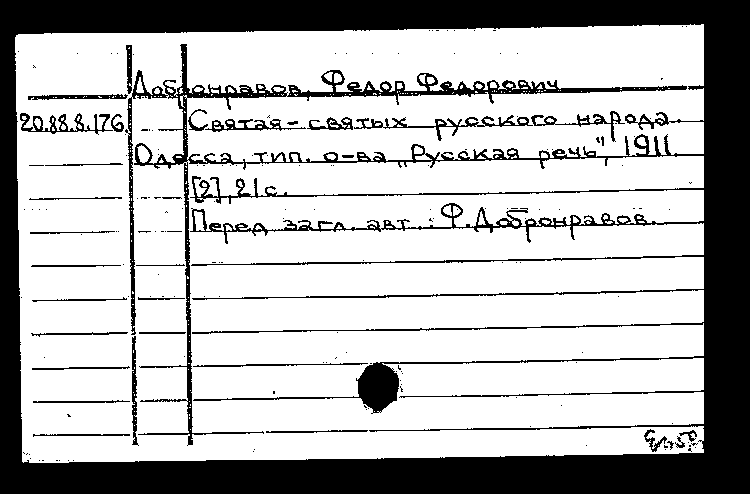 Добронравов, Федор Федорович
20.88.8.176. Святая-святых русского народа.
Одесса, тип. о-ва „Русская речь", 1911.
[2], 21с.
Перед загл. авт.: Ф. Добронравов.